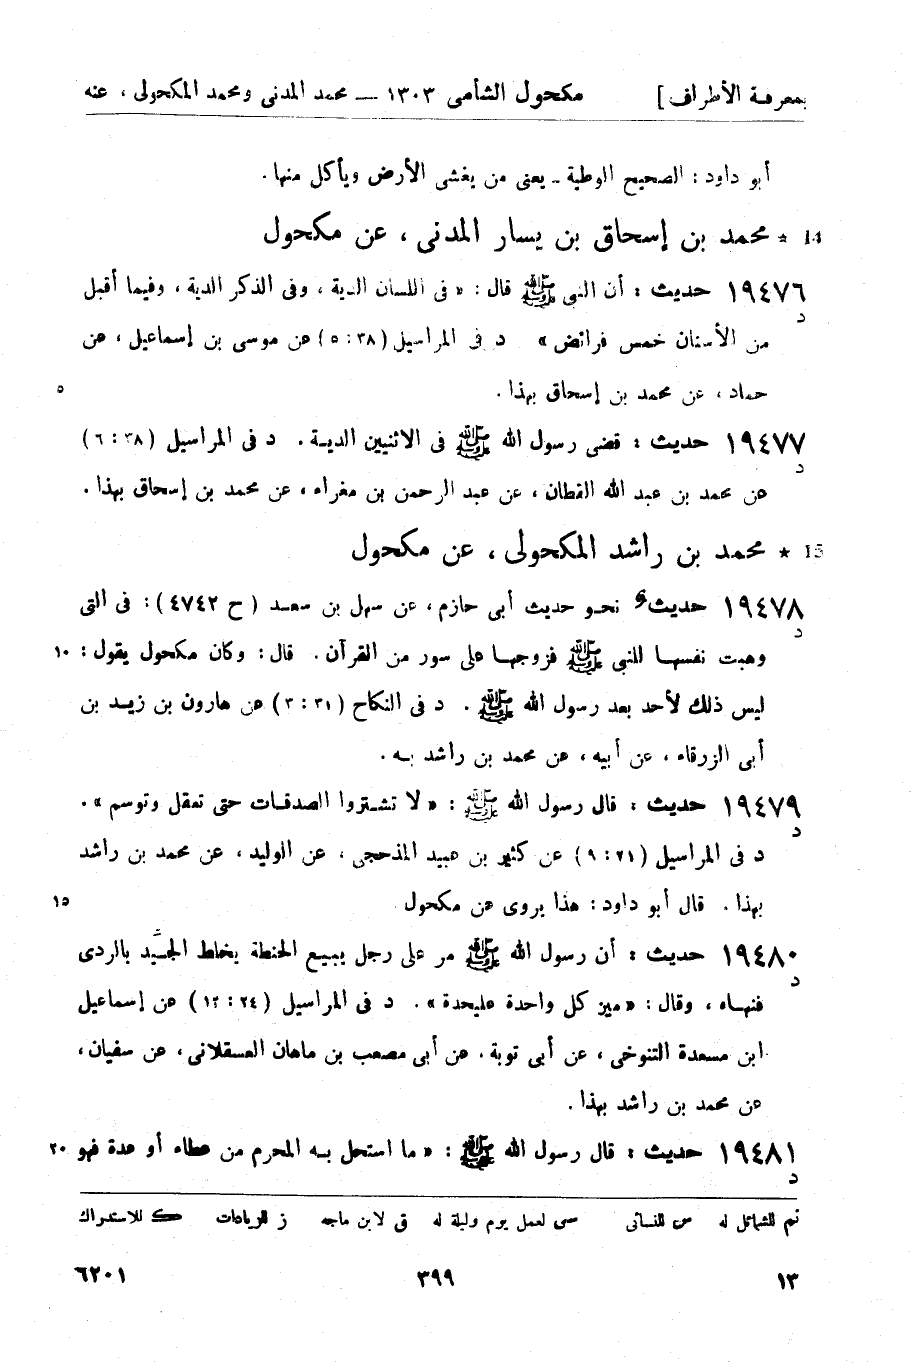 بمعرفة الأطراف] مكحول الشأمى ١٣٠٣ — محمد المدنى ومحمد المكحولى، عنه
أبو داود: الصحيح الوطية - يعنى من يغشى الأرض ويأكل منها.
14 * محمد بن إسحاق بن يسار المدنى، عن مكحول
١٩٤٧٦ حديث: أن النبى ﷺ قال: «فى اللسان الدية، وفى الذكر الدية، وفيما أقبل
د
من الأسنان خمس فرائض» د فى المراسيل (٣٨: ٥) عن موسى بن إسماعيل، عن
حماد، عن محمد بن إسحاق بهذا. ٥
١٩٤٧٧ حديث: قضى رسول الله ﷺ فى الاثنيين الدية. د فى المراسيل (٣٨: ٦)
د
عن محمد بن عبد الله القطان، عن عبد الرحمن بن مغراء، عن محمد بن إسحاق بهذا.
15 * محمد بن راشد المكحولى، عن مكحول
١٩٤٧٨ حديث نحو حديث أبى حازم، عن سهل بن سعد (ح ٤٧٤٢): فى التى
د
وهبت نفسها للنبى ﷺ فزوجها على سور من القرآن. قال: وكان مكحول يقول: ١٠
ليس ذلك لأحد بعد رسول الله ﷺ. د فى النكاح (٣١: ٣) عن هارون بن زيد بن
أبى الزرقاء، عن أبيه، عن محمد بن راشد به.
١٩٤٧٩ حديث: قال رسول الله ﷺ: «لا تشتروا الصدقات حتى تعقل وتوسم».
د
د فى المراسيل (٢١: ٩) عن كثير بن عبيد المذحجى، عن الوليد، عن محمد بن راشد
بهذا. قال أبو داود: هذا يروى عن مكحول ١٥
١٩٤٨٠ حديث: أن رسول الله ﷺ مر على رجل يبيع الحنطة يخلط الجيّد بالردى
د
فنهاه، وقال: «ميز كل واحدة عليحدة». د فى المراسيل (٢٤: ١٢) عن إسماعيل
ابن مسعدة التنوخى، عن أبى توبة، عن أبى مصعب بن ماهان العسقلانى، عن سفيان،
عن محمد بن راشد بهذا.
١٩٤٨١ حديث: قال رسول الله ﷺ: «ما استحل به المحرم من عطاء أو عدة فهو ٢٠
د
تم للشمائل له س للنسائى سى لعمل يوم وليلة له ق لابن ماجه ز للزيادات ك للاستدراك
١٣ ٣٩٩ ٦٢٠١